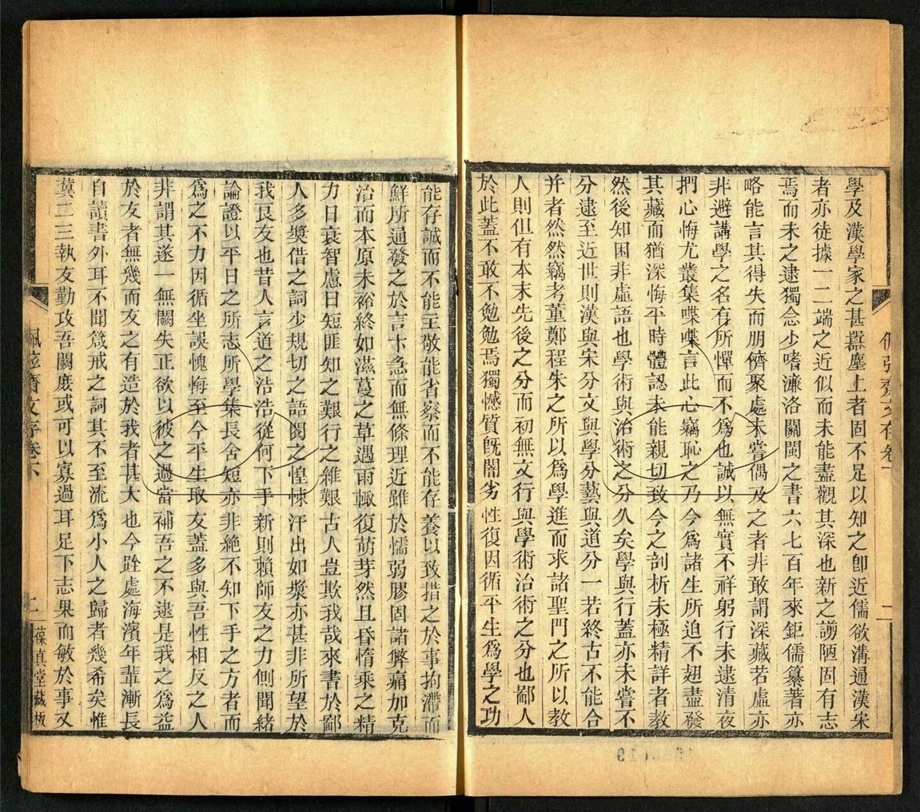 學及漢學家之甚囂塵上者固不足以知之卽近儒欲溝通漢宋
者亦徒據一二端之近似而未能盡觀其深也新之謭陋固有志
焉而未之逮獨念少嗜濂洛關閩之書六七百年來鉅儒纂著亦
略能言其得失而朋儕聚處未嘗偶及之者非敢謂深藏若虛亦
非避講學之名有所憚而不爲也誠以無實不祥躬行未逮清夜
捫心悔尤叢集喋喋言此心竊恥之乃今爲諸生所迫不翅盡發
其藏而猶深悔平時體認未能親切致今之剖析未極精詳者教
然後知困非虛語也學術與治術之分久矣學與行蓋亦未嘗不
分逮至近世則漢與宋分文與學分藝與道分一若終古不能合
并者然然竊考董鄭程朱之所以爲學進而求諸聖門之所以教
人則但有本末先後之分而初無文行與學術治術之分也鄙人
於此蓋不敢不勉勉焉獨憾質旣闇劣性復因循平生爲學之功
佩弦齋文存卷下
能存誠而不能主敬能省察而不能存養以致措之於事拘滯而
鮮所通發之於言卞急而無條理近雖於懦弱膠固諸弊痛加克
治而本原未裕終如滋蔓之草遇雨輒復萌芽然且昏惰乘之精
力日衰智慮日短匪知之艱行之維艱古人豈欺我哉來書於鄙
人多獎借之詞少規切之語閱之惶悚汗出如漿亦甚非所望於
我良友也昔人言道之浩浩從何下手新則賴師友之力側聞緒
論證以平日之所志所學集長舍短亦非絕不知下手之方者而
爲之不力因循坐誤愧悔至今平生取友蓋多與吾性相反之人
非謂其遂一無闕失正欲以彼之過當補吾之不逮是我之爲益
於友者無幾而友之有造於我者甚大也今跧處海濱年輩漸長
自讀書外耳不聞箴戒之詞其不至流爲小人之歸者幾希矣惟
冀二三執友勤攻吾闕庶或可以寡過耳足下志果而敏於事又
佩弦齋文存卷下
葆真堂藏板